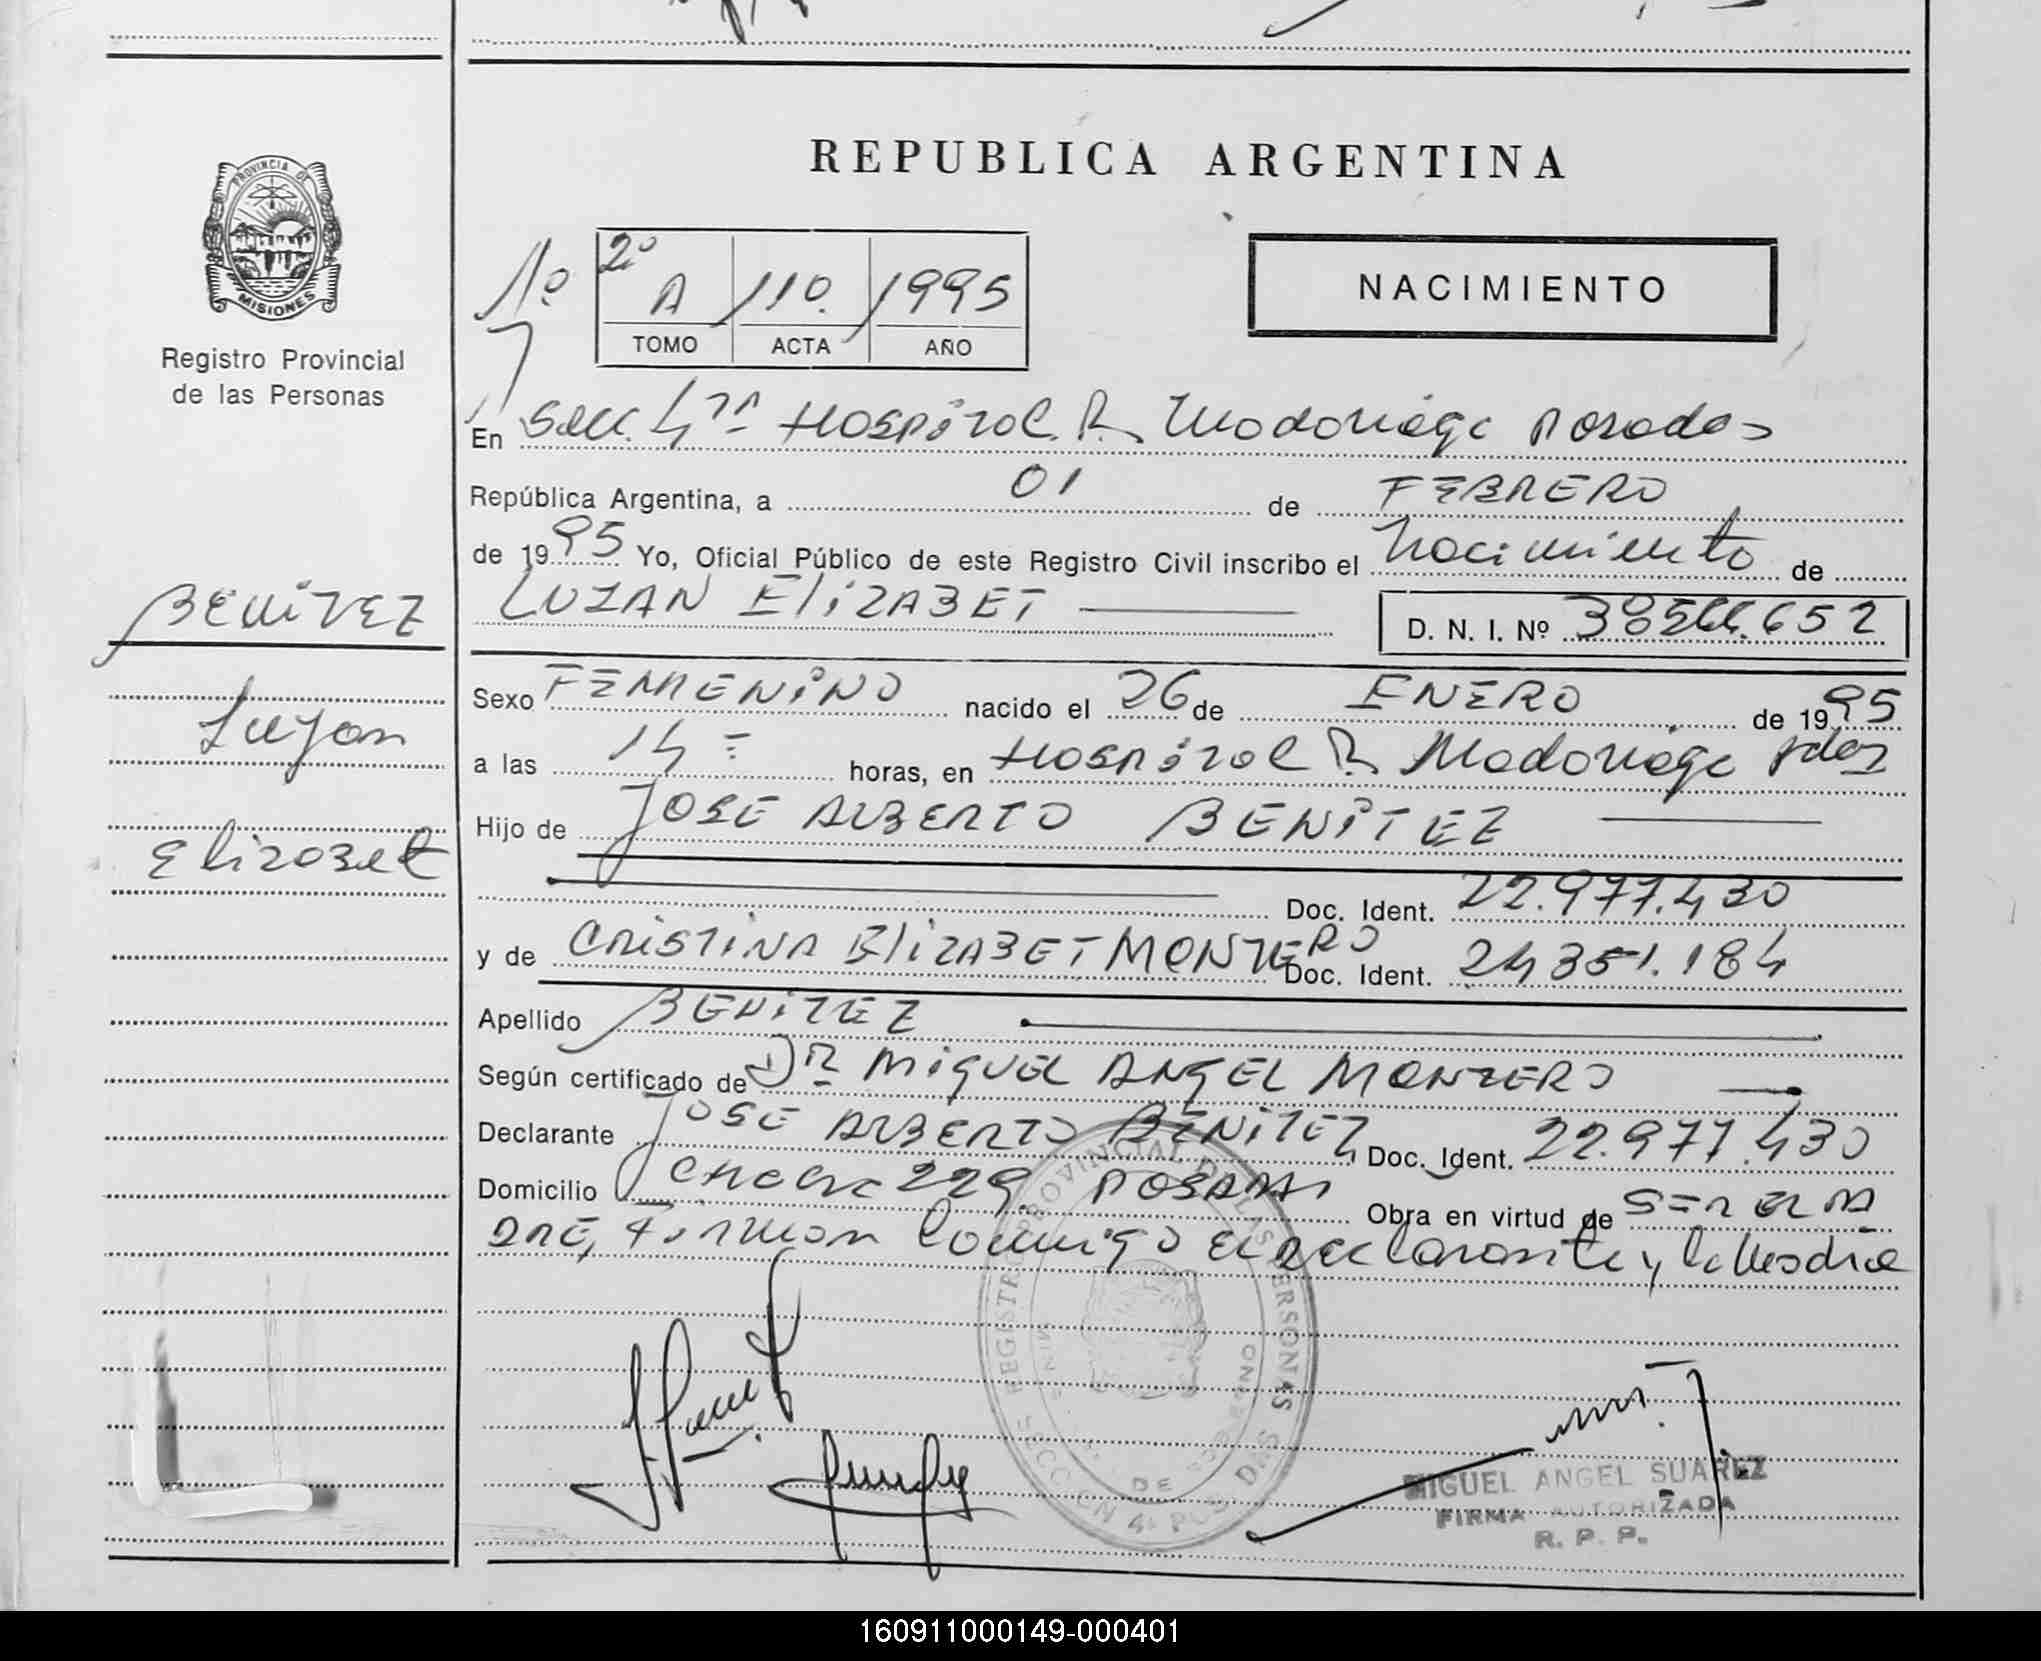 REPUBLICA ARGENTINA
PROVINCIA DE
MISIONES
Registro Provincial
de las Personas
Nº
2º
A 110. 1995
TOMO ACTA AÑO
NACIMIENTO
En Secc. 4ta Hospital R. Madariaga Posadas
República Argentina, a 01 de FEBRERO
de 1995 Yo, Oficial Público de este Registro Civil inscribo el Nacimiento de
LUJAN ElizABET
D. N. I. Nº 652
BENITEZ
Lujan
Elizabet
Sexo FEMENINO nacido el 26 de ENERO de 1995
a las 14 horas, en Hospital R. Madariaga Pdas
Hijo de JOSE ALBERTO BENITEZ
Doc. Ident. 22.977.430
y de CRISTINA ElizABET MONTERO Doc. Ident. 24351.184
Apellido BENITEZ
Según certificado de DR MIGUEL ANGEL MONTERO
Declarante JOSE ALBERTO BENITEZ Doc. Ident. 22.977.430
Domicilio 229 POSADAS Obra en virtud de SER EL PA
DRE, Firman Conmigo el Declarante y la Madre
REGISTRO PROVINCIAL DE LAS PERSONAS
SECCION 4a POSADAS
DE GOBIERNO
MIGUEL ANGEL SUAREZ
FIRMA AUTORIZADA
R. P. P.
160911000149-000401